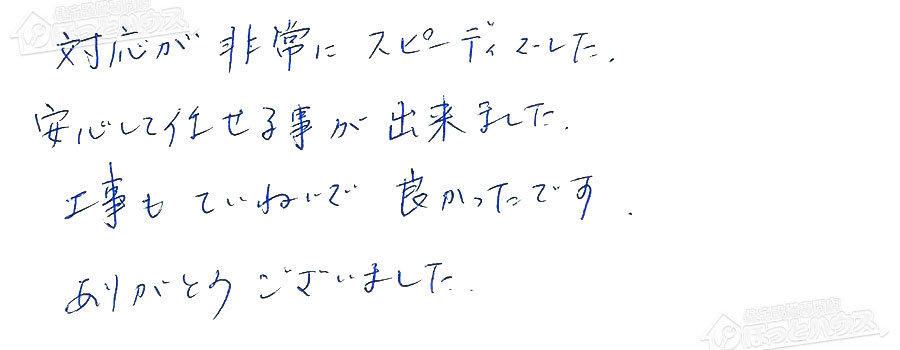 対応が非常にスピーディでした.
安心して任せる事が出来ました.
工事もていねいで良かったです.
ありがとうございました.
住宅設備専門店
ほっとハウス